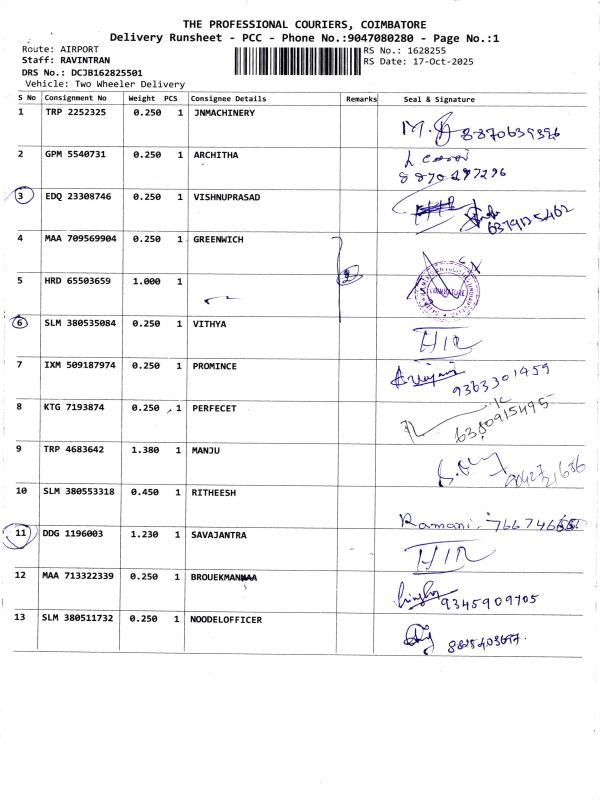 THE PROFESSIONAL COURIERS, COIMBATORE
Delivery Runsheet - PCC - Phone No.:9047080280 - Page No.:1
Route: AIRPORT RS No.: 1628255
Staff: RAVINTRAN RS Date: 17-Oct-2025
DRS No.: DCJB162825501
Vehicle: Two Wheeler Delivery
S No Consignment No Weight PCS Consignee Details Remarks Seal & Signature
1 TRP 2252325 0.250 1 JNMACHINERY 8870639396
2 GPM 5540731 0.250 1 ARCHITHA
8870297296
3 EDQ 23308746 0.250 1 VISHNUPRASAD
4 MAA 709569904 0.250 1 GREENWICH
5 HRD 65503659 1.000 1 COIMBATORE
6 SLM 380535084 0.250 1 VITHYA HIR
7 IXM 509187974 0.250 1 PROMINCE
9363301459
8 KTG 7193874 0.250 1 PERFECET 6380915495
9 TRP 4683642 1.380 1 MANJU
10 SLM 380553318 0.450 1 RITHEESH Ramani
11 DDG 1196003 1.230 1 SAVAJANTRA HIR
12 MAA 713322339 0.250 1 BROUEKMANNAA 9345909705
13 SLM 380511732 0.250 1 NOODELOFFICER